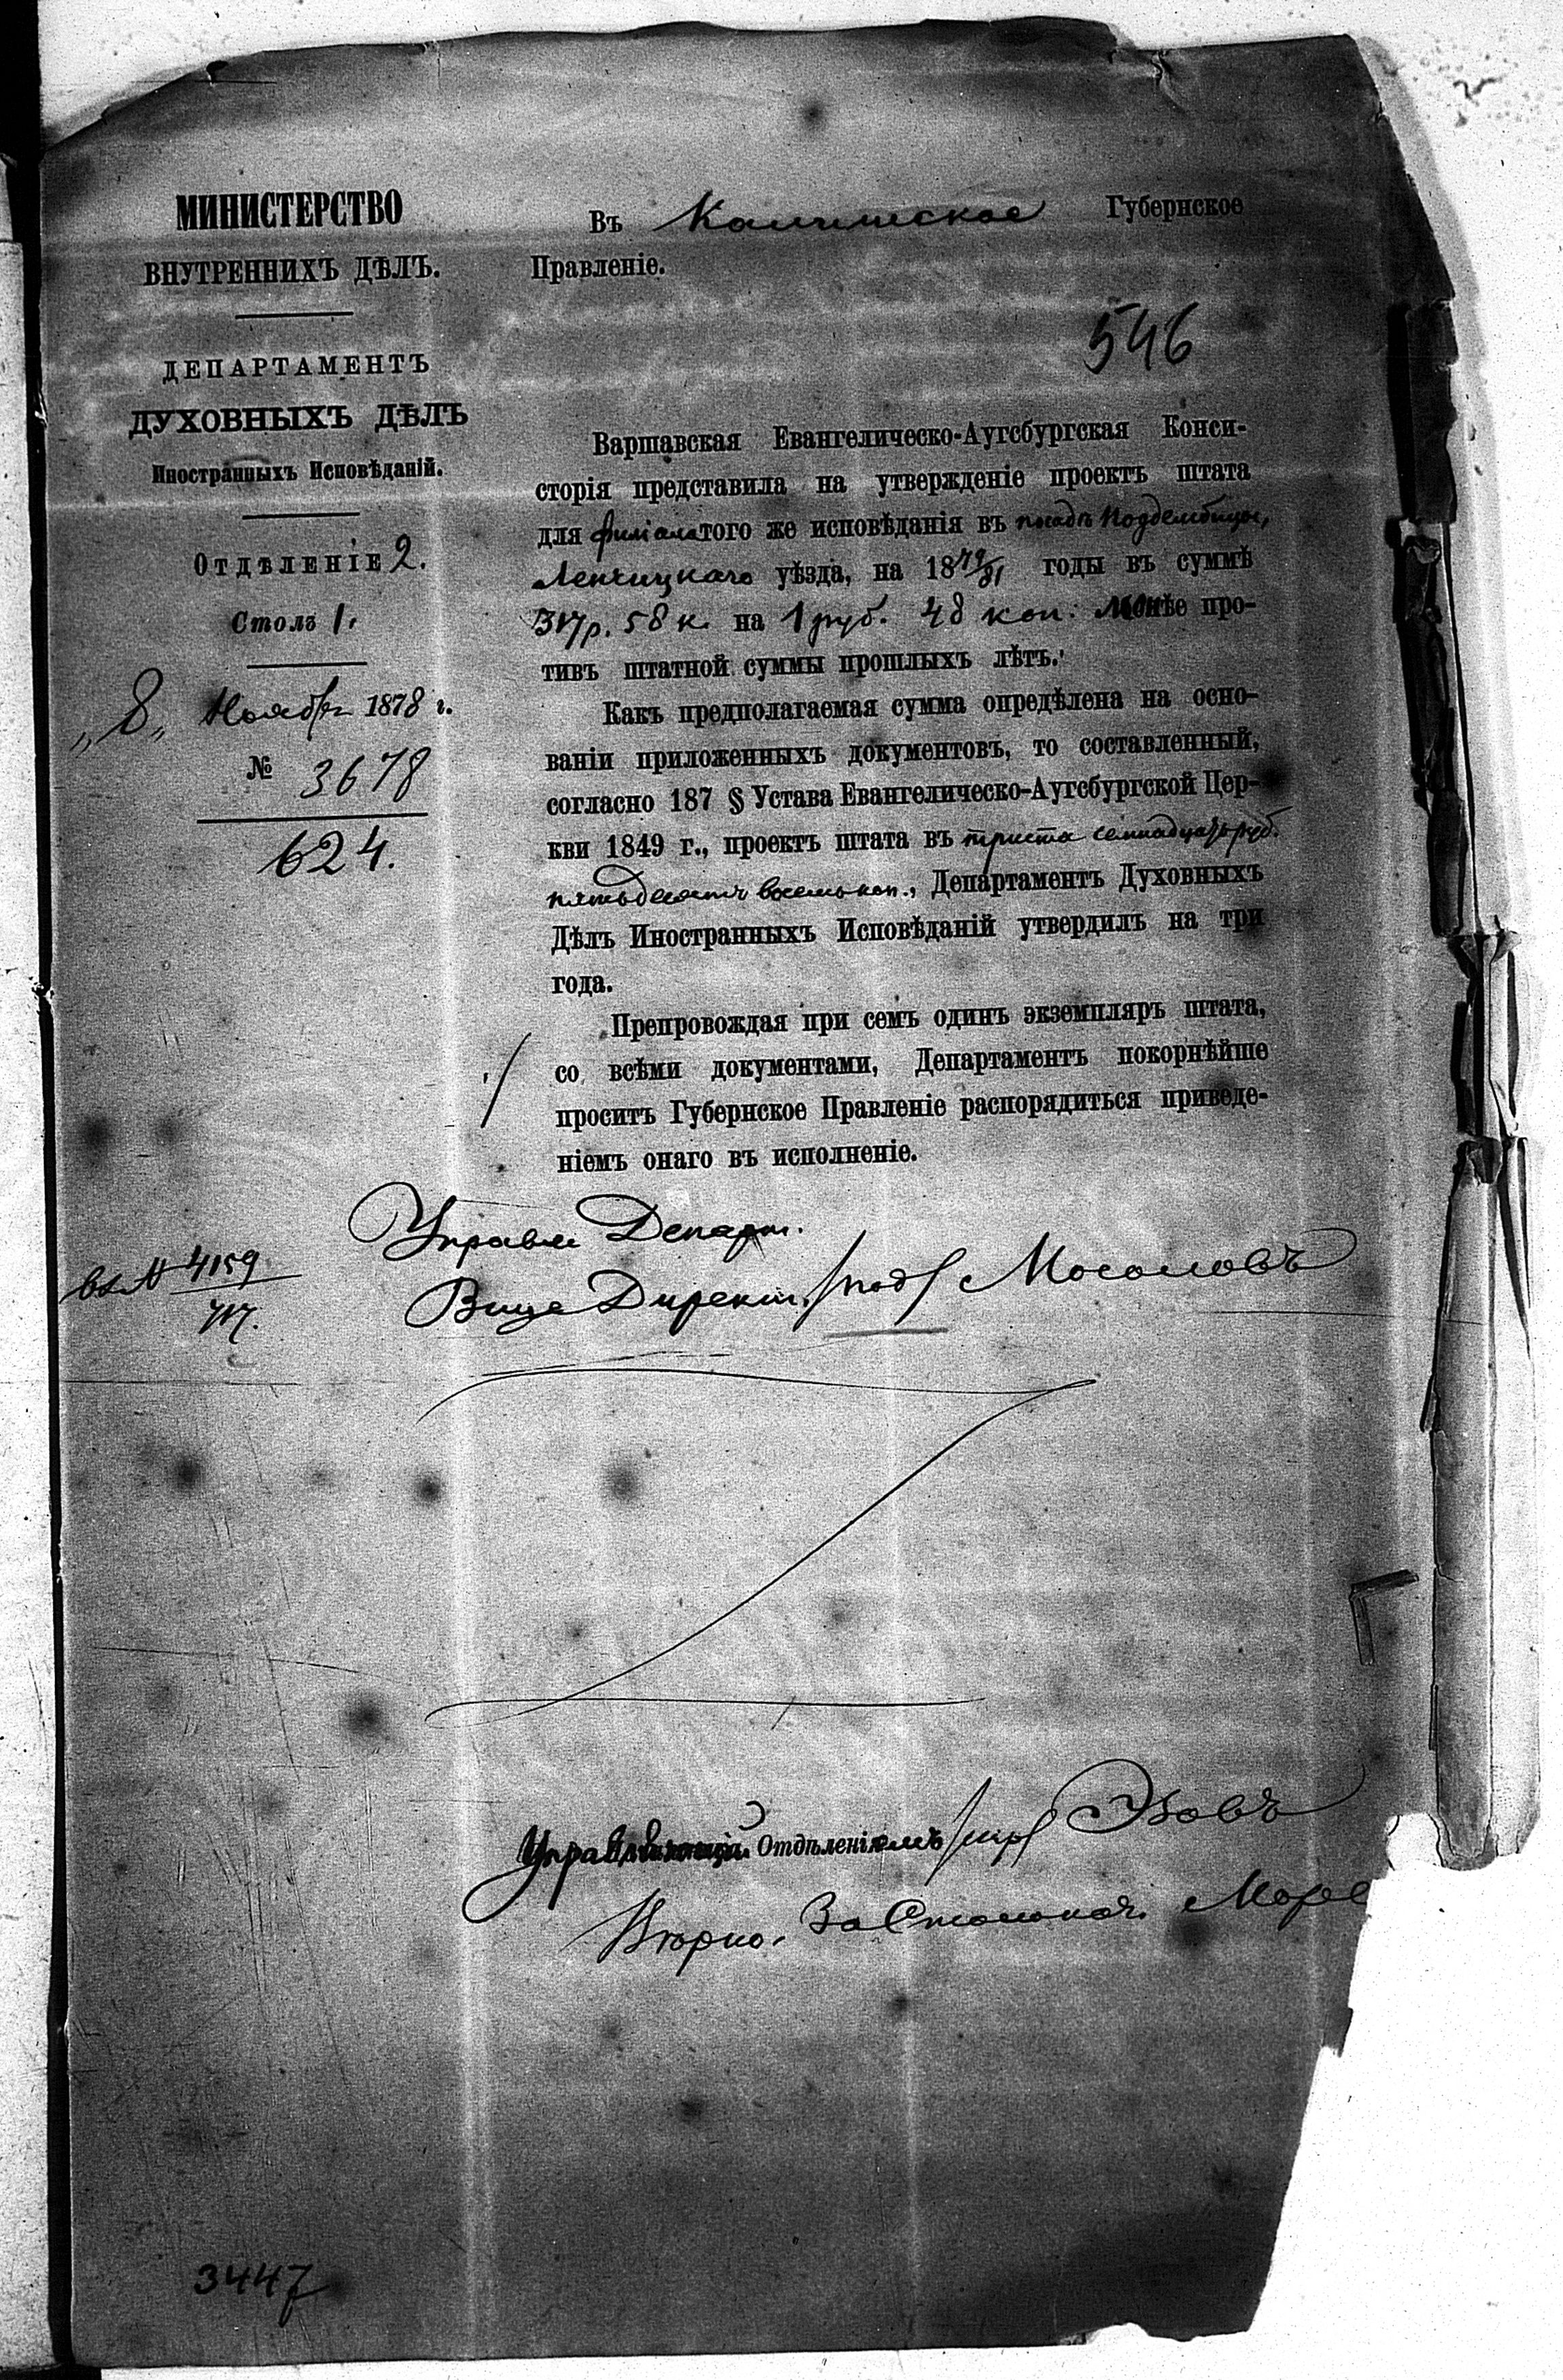 МИНИСТЕРСТВО
ВНУТРЕННИХЪ ДѢЛЪ.
ДЕПАРТАМЕНТЪ
ДУХОВНЫХЪ ДѢЛЪ
Иностранныхъ Исповѣданій.
Отдѣленіе 2.
Столъ 1.
„8„ Ноября 1878 г.
№ 3678
624.
Въ Калишское Губернское
Правленіе.
546
Варшавская Евангелическо-Аугсбургская Конси-
сторія представила на утвержденіе проектъ штата
для филіала того же исповѣданія въ посадѣ Поддембицы,
Ленчицкаго уѣзда, на 1879/81 годы въ суммѣ
317 р. 58 к. на 1 руб. 48 коп. менѣе про-
тивъ штатной суммы прошлыхъ лѣтъ.
Какъ предполагаемая сумма опредѣлена на осно-
ваніи приложенныхъ документовъ, то составленный,
согласно 187 § Устава Евангелическо-Аугсбургской Цер-
кви 1849 г., проектъ штата въ триста семнадцать руб.
пятьдесятъ восемь коп., Департаментъ Духовныхъ
Дѣлъ Иностранныхъ Исповѣданій утвердилъ на три
года.
Препровождая при семъ одинъ экземпляръ штата,
со всѣми документами, Департаментъ покорнѣйше
проситъ Губернское Правленіе распорядиться приведе-
ніемъ онаго въ исполненіе.
Управл Департ.
Вице Директ. /под/ Мосоловъ
вх № 4159
717.
Управляющій Отдѣленіемъ /скр/ Эзовъ
Вѣрно. За Столонач.
3447